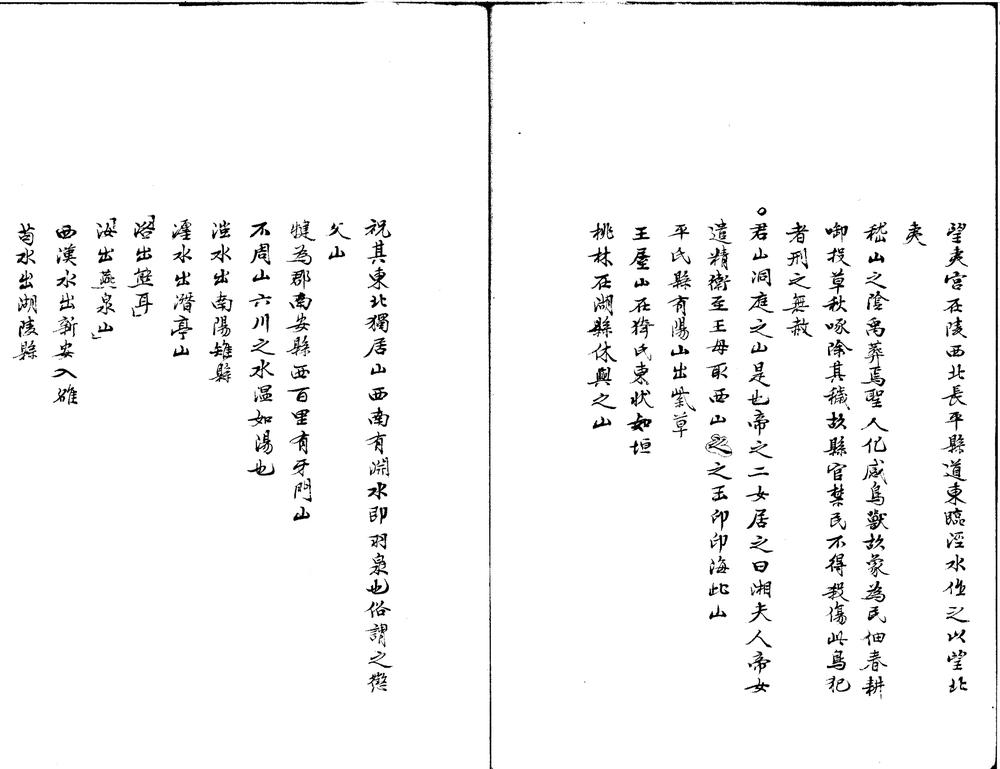 望夷宮在陵西北長平縣道東臨涇水作之以望北
夷
嵇山之陰禹葬焉聖人化感鳥獸故象為民佃春耕
啣拔草秋啄除其穢故縣官禁民不得殺傷此鳥犯
者刑之無赦
○君山洞庭之山是也帝之二女居之曰湘夫人帝女
遣精衛至王母取西山之玉印印海北山
平氏縣有陽山出紫草
王屋山在猗氏東狀如垣
桃林在湖縣休與之山
祝其東北獨居山西南有淵水即羽泉也俗謂之懲
父山
犍為郡南安縣西百里有牙門山
不周山六川之水温如湯也
滍水出南陽雉縣
瀍水出潛亭山
洛出熊耳」
汝出燕泉山」
西漢水出新安入雒
苟水出湖陵縣